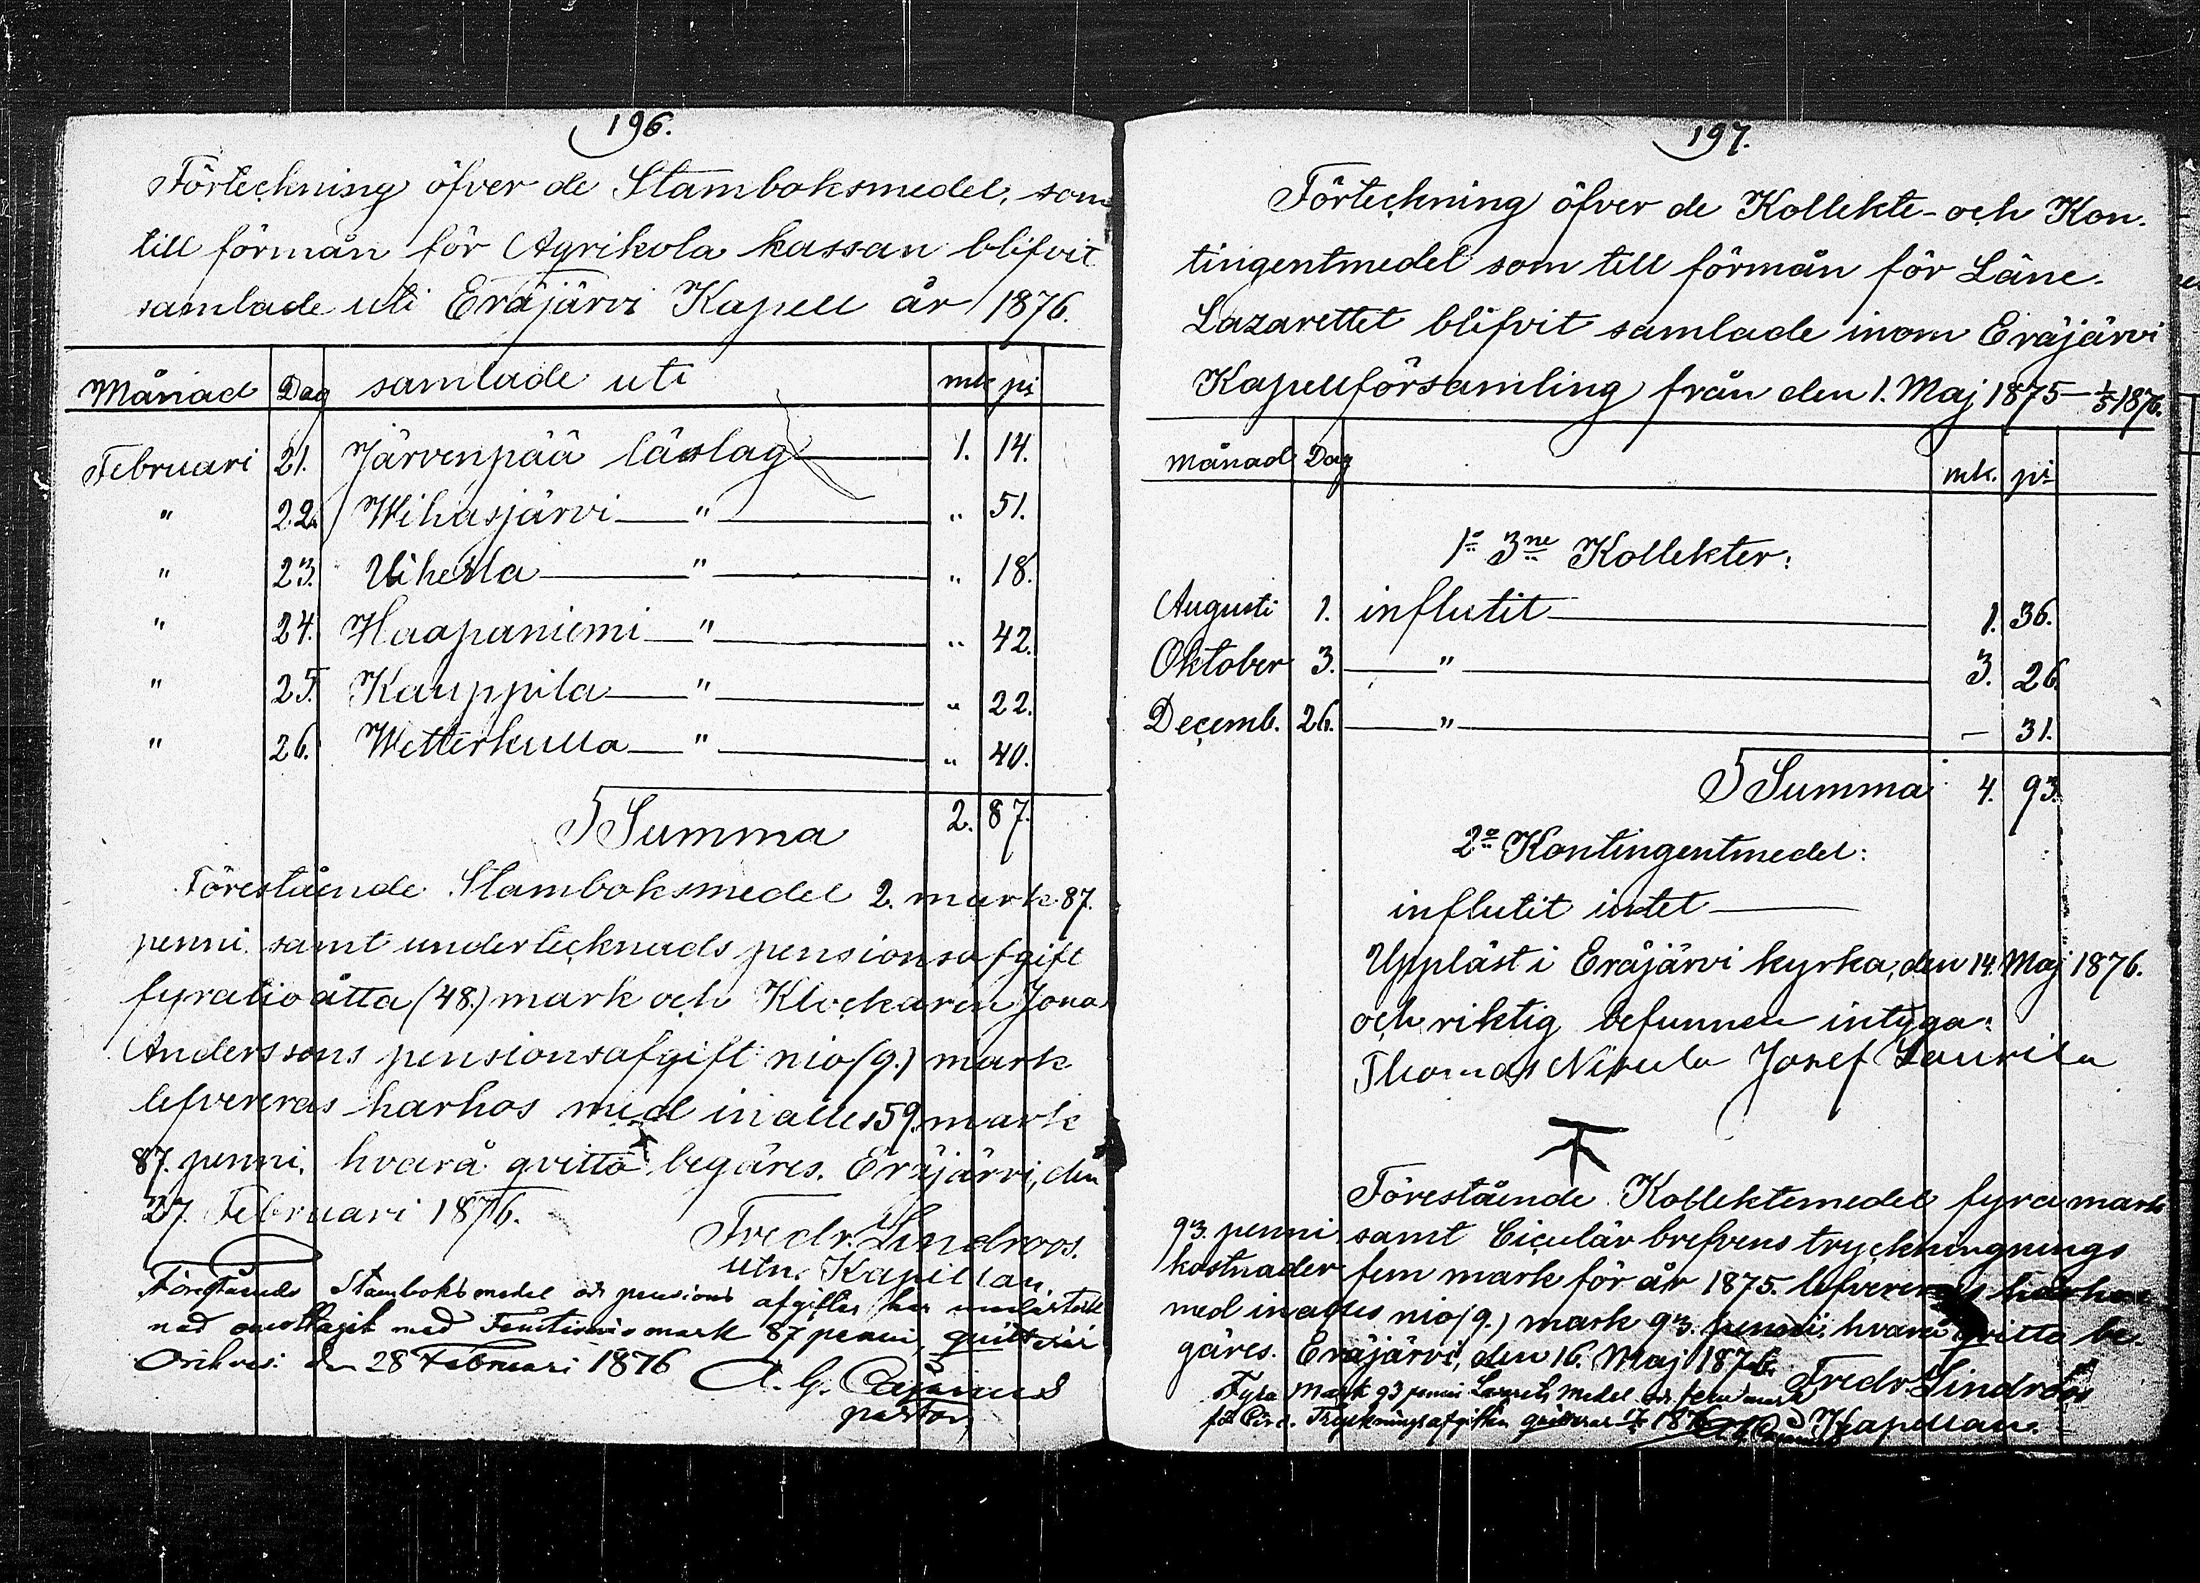 196.
Förteckning öfver de Stamboksmedel, som
till förmån för Agrikola kassan blifvit
samlade uti Eräjärvi Kapell år 1876.
Månad Dag samlade uti mk pi
Februari 21. Järvenpää läslag 1. 14.
" 22. Wihasjärvi " " 51.
" 23. Uiherla " " 18.
" 24. Haapaniemi " " 42.
" 25. Kauppila " " 22.
" 26. Wetterkulla " " 40.
Summa 2. 87.
Förestående Stamboksmedel 2. mark 87.
penni samt undertecknads pensionsafgift
fyratioåtta (48.) mark och Klockaren Jonas
Anderssons pensionsafgift nio (9.) mark
lefvereras härhos med inalles 59. mark
87. penni, hvarå qvitto begäres. Eräjärvi, den
27. Februari 1876.
Fredr. Lindroos.
utn. Kapellan
Förestående Stamboksmedel och pensions afgifter har underteck
nad emottagit med Femtionio mark 87 penni, quitterar
Orihvesi den 28 Februari 1876
A. G. Cajanus
pastor
197.
Förteckning öfver de Kollekte- och Kon-
tingentmedel som till förmån för Läne-
Lazarettet blifvit samlade inom Eräjärvi
Kapellförsamling från den 1. Maj 1875 – 1/5 1876.
Månad Dag mk. pi
1o 3ne Kollekter:
Augusti 1. influtit 1. 36.
Oktober 3. " 3. 26.
Decemb. 26. " – 31.
Summa 4. 93.
2o Kontingentmedel:
influtit intet
Uppläst i Eräjärvi kyrka, den 14. Maj 1876.
och riktig befunnen intyga:
Thomas Nikula Josef Laurila
Förestående Kollektemedel fyra mark
93. penni samt Ciculär brefvens tryckningnings
kostnader fem mark för år 1875. lefvereras härhos
med inalles nio (9.) mark 93. penni, hvarå qvitto be-
gäres. Eräjärvi, den 16. Maj 1876.
Fredr. Lindroos
Kapellan.
Fyra mark 93 penni Lazarets medel och fem mark
för Circ. Tryckningsafgiften quitteras